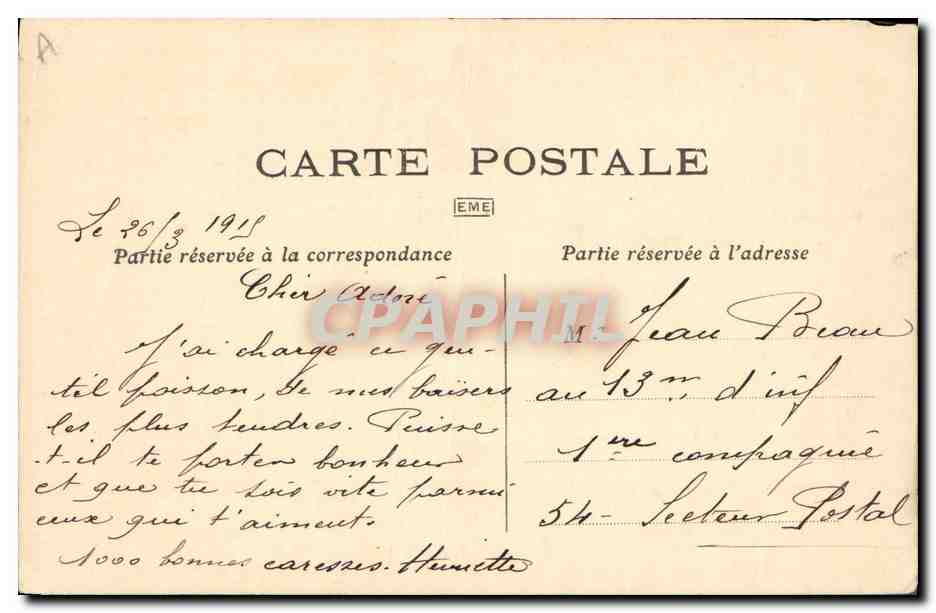 A
CARTE POSTALE
EME
Le 26/3 1915
Partie réservée à la correspondance
Partie réservée à l'adresse
Cher Adoré
J'ai chargé ce gen-
til poisson, de mes baïsers
les plus tendres. Puisse
-t-il te porter bonheur
et que tu sois vite parmi
ceux qui t'aiment.
1000 bonnes caresses. Henriette
M. Jean Beau
au 13m d'inf
1ere compagnie
54 - Secteur Postal
CPAPHIL